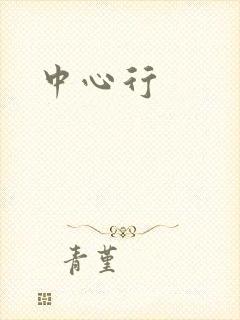 中心行
青堇